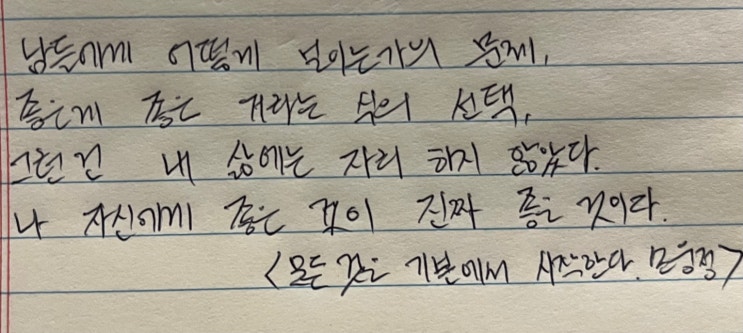 남들에게 어떻게 보이는가의 문제,
좋은게 좋은 거라는 식의 선택,
그런 건 내 삶에는 자리 하지 않았다.
나 자신에게 좋은 것이 진짜 좋은 것이다.
<모든 것은 기본에서 시작한다.